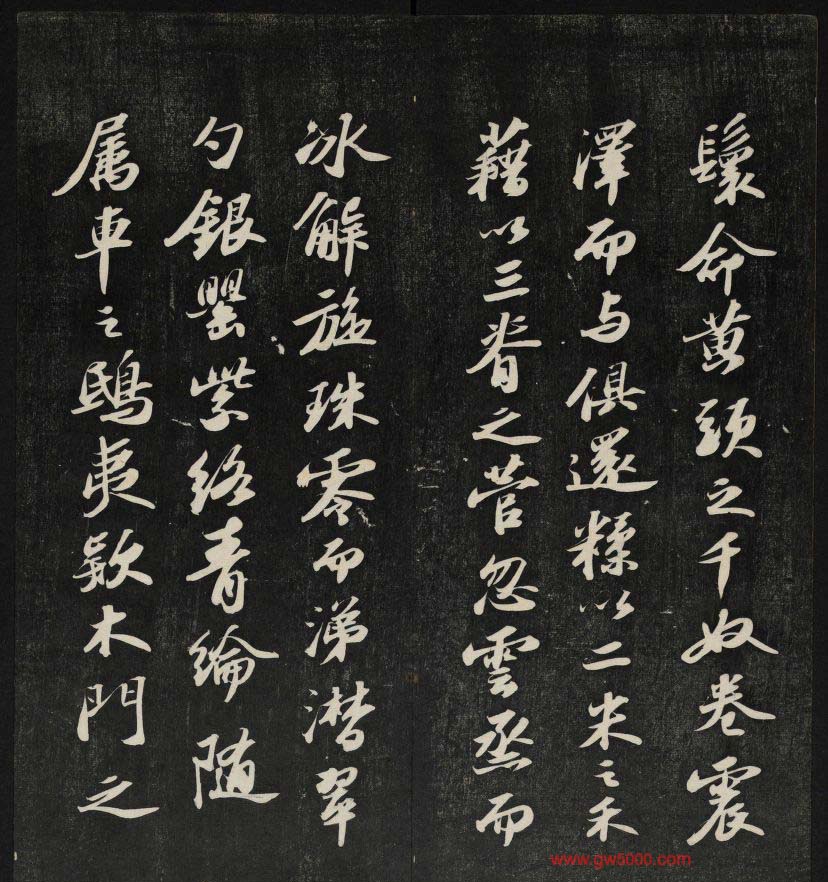 鬟命黄頭之千奴卷震
澤而与俱還糅以二米之禾
藉以三脊之菅忽雲烝而
冰解旋珠零而涕潸翠
勺銀罌紫絡青綸随
属車之鴟夷欵木門之
www.gw5000.com